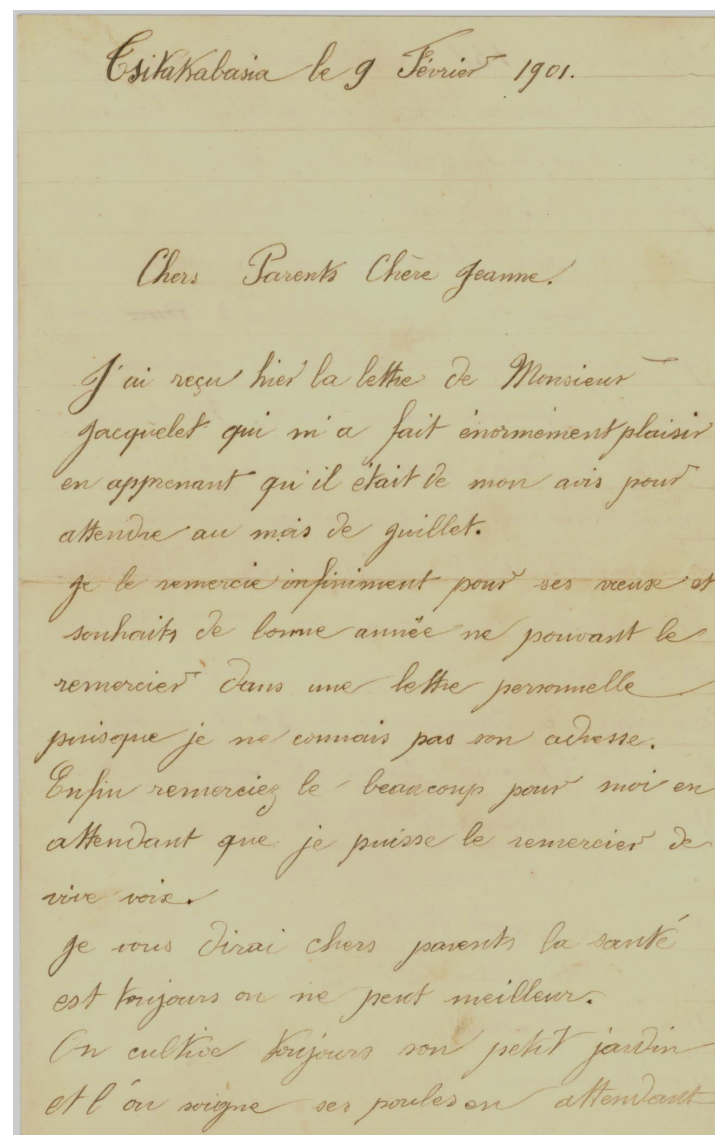 Tsitakabasia le 9 Février 1901.
Chers Parents Chère Jeanne.
J'ai reçu hier la lettre de Monsieur
Jacquelet qui m'a fait énormément plaisir
en apprenant qu'il était de mon avis pour
attendre au mois de Juillet.
Je le remercie infiniment pour ses vœux et
souhaits de bonne année ne pouvant le
remercier dans une lettre personnelle
puisque je ne connais pas son adresse.
Enfin remerciez le beaucoup pour moi en
attendant que je puisse le remercier de
vive voix.
Je vous dirai chers parents la santé
est toujours on ne peut meilleur.
On cultive toujours son petit jardin
et l'on soigne ses poules en attendant